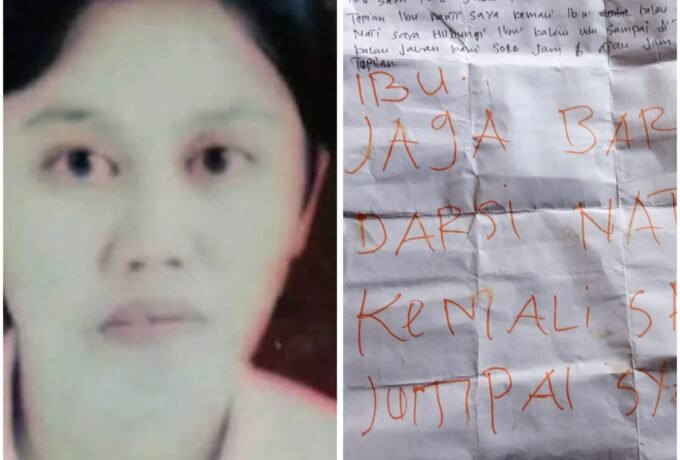 Tepian Ibu nanti saya kemali Ibu kalau
Nati saya Hubungi Ibu kalau udu sampai di
kalau Jalan pari sore Jam 5 atau Jam
Tepian
IBU.
JAGA BAR
DARSi NAT
KEMALi SA
JUMPAI SY